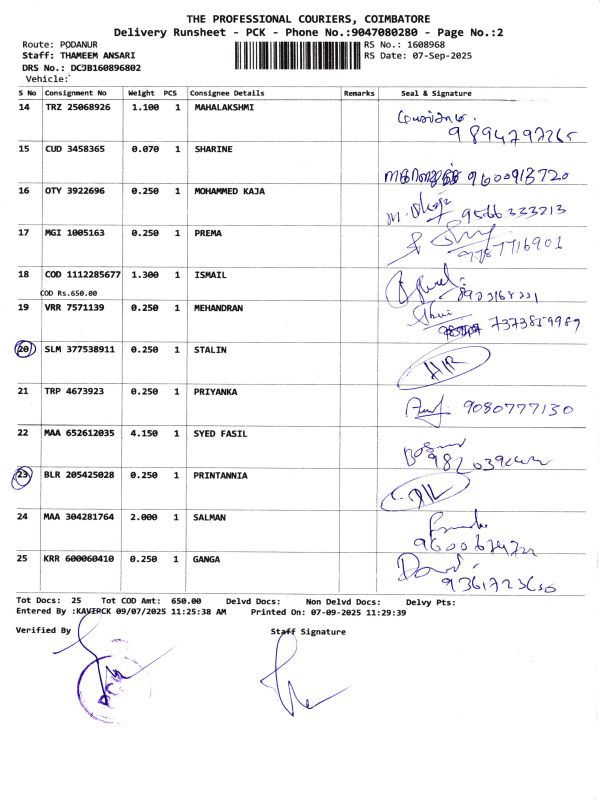 THE PROFESSIONAL COURIERS, COIMBATORE
Delivery Runsheet - PCK - Phone No.:9047080280 - Page No.:2
Route: PODANUR RS No.: 1608968
Staff: THAMEEM ANSARI RS Date: 07-Sep-2025
DRS No.: DCJB160896802
Vehicle:
S No Consignment No Weight PCS Consignee Details Remarks Seal & Signature
14 TRZ 25068926 1.100 1 MAHALAKSHMI
9894797265
15 CUD 3458365 0.070 1 SHARINE
9600913720
16 OTY 3922696 0.250 1 MOHAMMED KAJA
9566333213
17 MGI 1005163 0.250 1 PREMA
9787716901
18 COD 1112285677 1.300 1 ISMAIL
COD Rs.650.00
19 VRR 7571139 0.250 1 MEHANDRAN
7373859989
20 SLM 377538911 0.250 1 STALIN
21 TRP 4673923 0.250 1 PRIYANKA
9080777130
22 MAA 652612035 4.150 1 SYED FASIL
23 BLR 205425028 0.250 1 PRINTANNIA
24 MAA 304281764 2.000 1 SALMAN
25 KRR 600060410 0.250 1 GANGA
Tot Docs: 25 Tot COD Amt: 650.00 Delvd Docs: Non Delvd Docs: Delvy Pts:
Entered By :KAVIPCK 09/07/2025 11:25:38 AM Printed On: 07-09-2025 11:29:39
Verified By Staff Signature